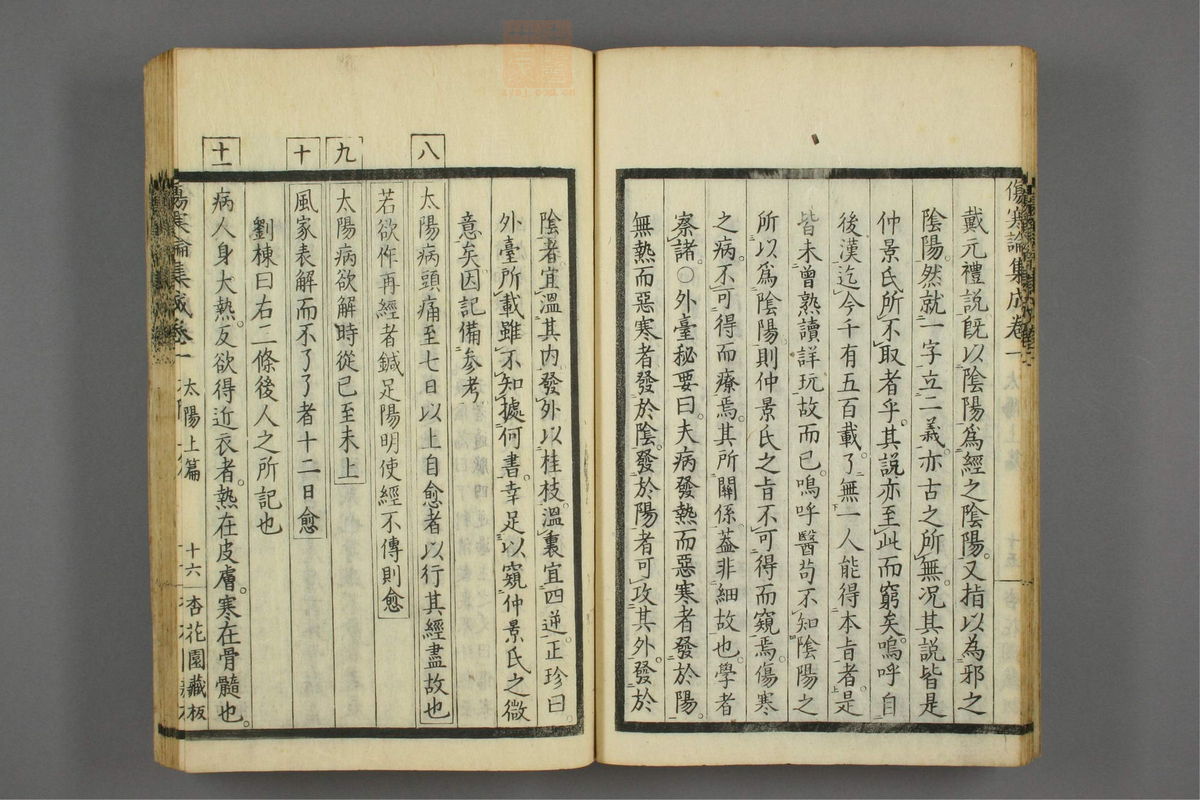 傷寒論集成卷一
戴元禮說既以陰陽爲經之陰陽。又指以為邪之
陰陽。然就一字立二義。亦古之所無。况其說皆是
仲景氏所不取者乎。其說亦至此而窮矣。嗚呼自
後漢迄今千有五百載。了無一人能得本旨者。是
皆未曾熟讀詳玩故而已。嗚呼醫苟不知陰陽之
所以爲陰陽。則仲景氏之旨不可得而窺焉。傷寒
之病。不可得而療焉。其所關係蓋非細故也。學者
察諸。〇外臺秘要曰。夫病發熱而惡寒者。發於陽。
無熱而惡寒者。發於陰。發於陽者。可攻其外。發於
陰者。宜溫其內。發外以桂枝。溫裏宜四逆。正珍曰。
外臺所載。雖不知據何書。幸足以窺仲景氏之微
意矣。因記備參考
八
太陽病頭痛至七日以上自愈者以行其經盡故也
若欲作再經者鍼足陽明使經不傳則愈
九
太陽病欲解時從巳至未上
十
風家表解而不了了者十二日愈
劉棟曰右二條後人之所記也
十一
病人身大熱。反欲得近衣者。熱在皮膚。寒在骨髓也。
傷寒論集成卷一
太陽上篇
十六
杏花園藏板